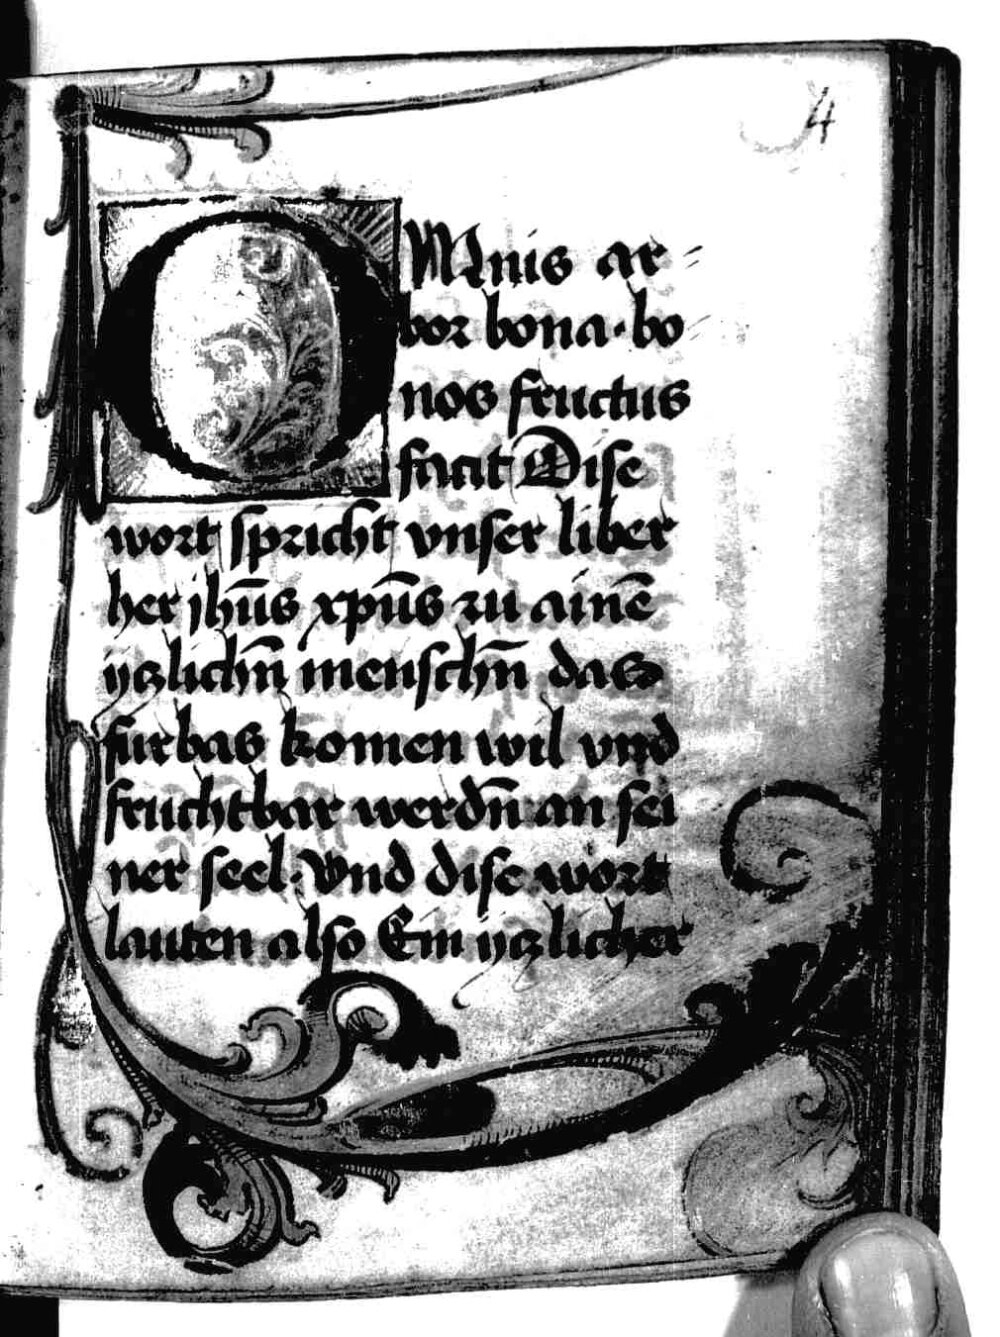 4
OMnis ar-
bor bona · bo
nos fructus
facit Dise
wort spricht vnser liber
her jhūs xpūs zu ainē
yglichn̄ menschn̄ das
furbas komen wil vnd
fruchtbar werdn̄ an sei
ner seel · Vnd dise wort
lauten also Ein yglicher